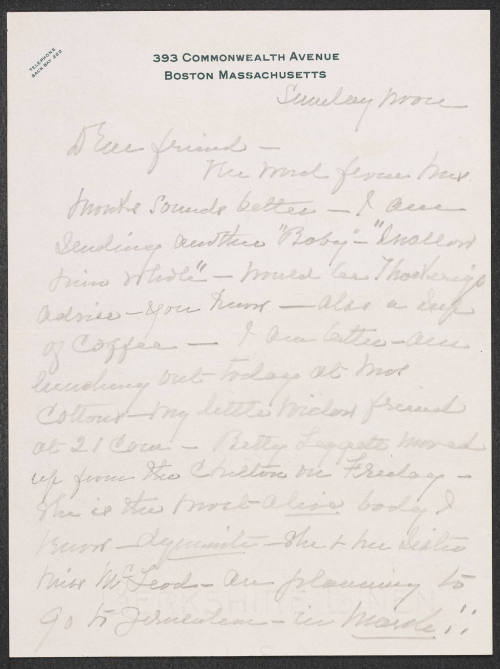 TELEPHONE
BACK BAY 262
393 COMMONWEALTH AVENUE
BOSTON MASSACHUSETTS
Sunday noon
Dear friend —
The word from Mrs
sounds better — I am
sending another "Baby" — "Swallow
him whole" — would be
advice — you know — also a cup
of Coffee — I am better — am
lunching out today at Mrs
Cottons — my little widow friend
at 21 Com — Betty Leggett moved
up from the Chilton on Friday —
She is the most alive body I
know — dynamite — She & her sister
Miss McLeod — are planning to
go to Jerusalem — in March!!